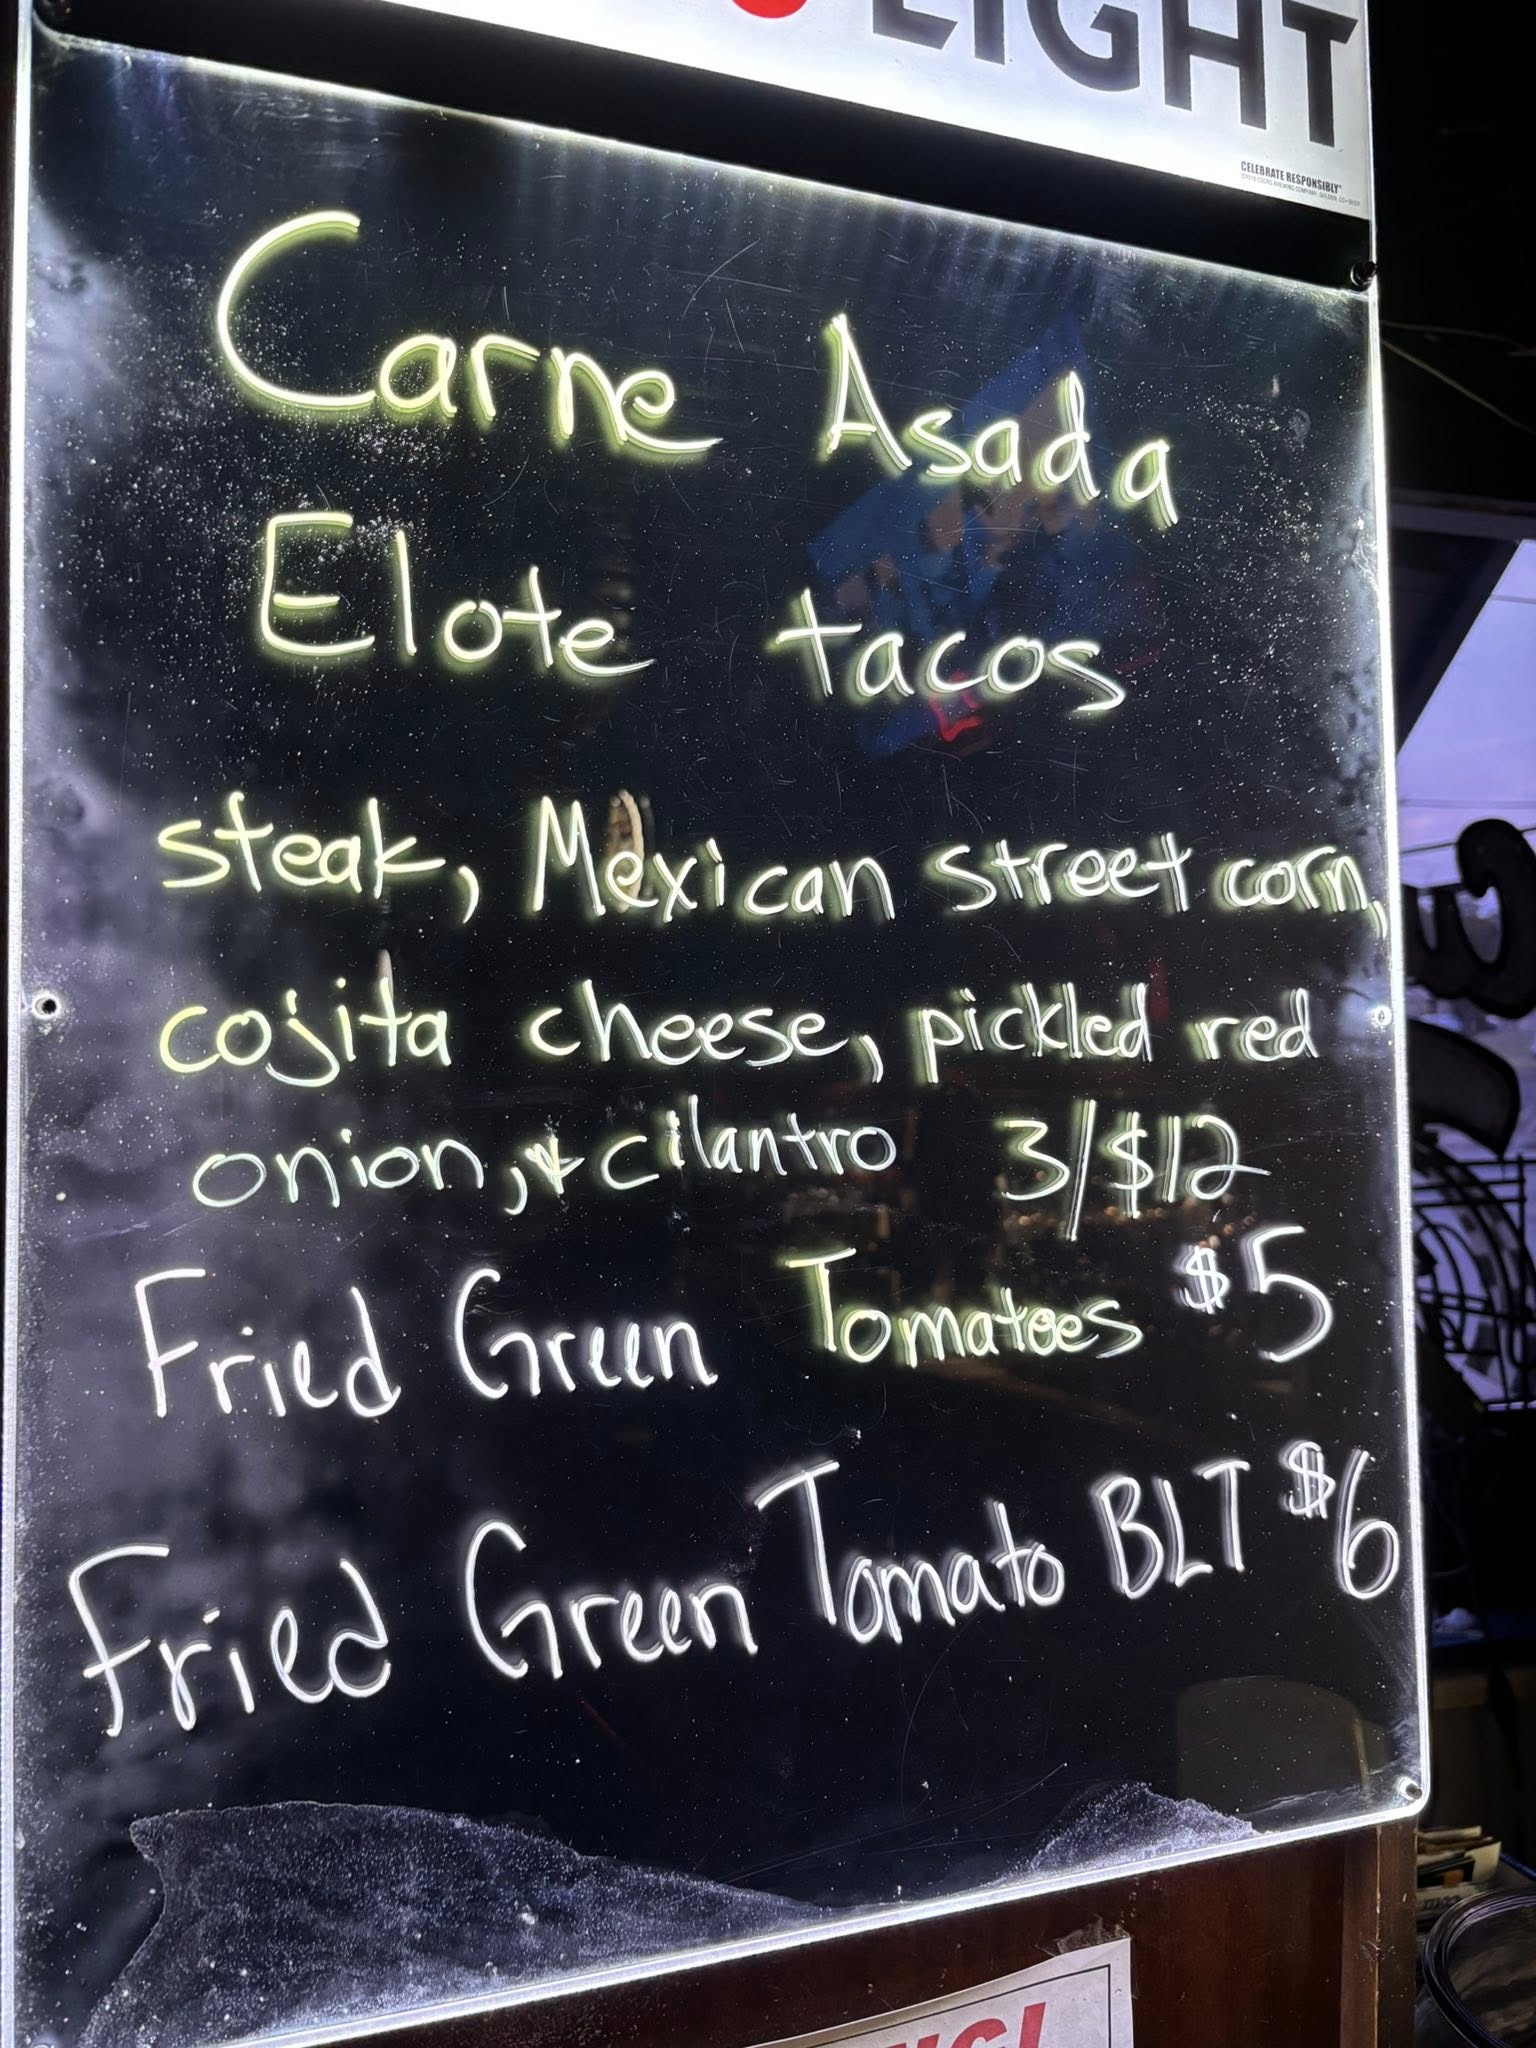 LIGHT
CELEBRATE RESPONSIBLY
Carne Asada
Elote tacos
steak, Mexican street corn,
cojita cheese, pickled red
onion, & cilantro 3/$12
Fried Green Tomatoes $5
Fried Green Tomato BLT $6